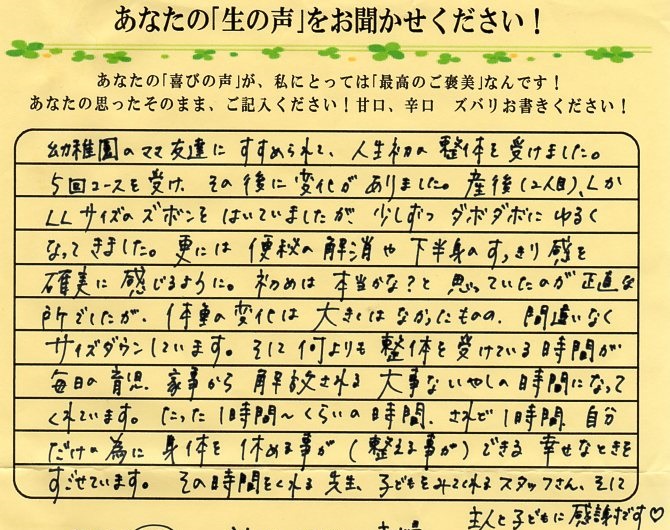 あなたの「生の声」をお聞かせください！
あなたの「喜びの声」が、私にとっては「最高のご褒美」なんです！
あなたの思ったそのまま、ご記入ください！甘口、辛口　ズバリお書きください！
幼稚園のママ友達にすすめられて、人生初の整体を受けました。
5回コースを受け、その後に変化がありました。産後(2人目)、Lか
LLサイズのズボンをはいていましたが、少しずつダボダボにゆるく
なってきました。更には便秘の解消や下半身のすっきり感を
確実に感じるように。初めは本当かな？と思っていたのが正直な
所でしたが、体重の変化は大きくはなかったものの、間違いなく
サイズダウンしています。そして何よりも整体を受けている時間が
毎日の育児、家事から解放される大事ないやしの時間になって
くれています。たった1時間〜くらいの時間、されど1時間、自分
だけの為に身体を休める事が(整える事が)できる幸せなときを
すごせています。その時間をくれる先生、子どもをみてくれるスタッフさん、そして
主人と子どもに感謝です♡